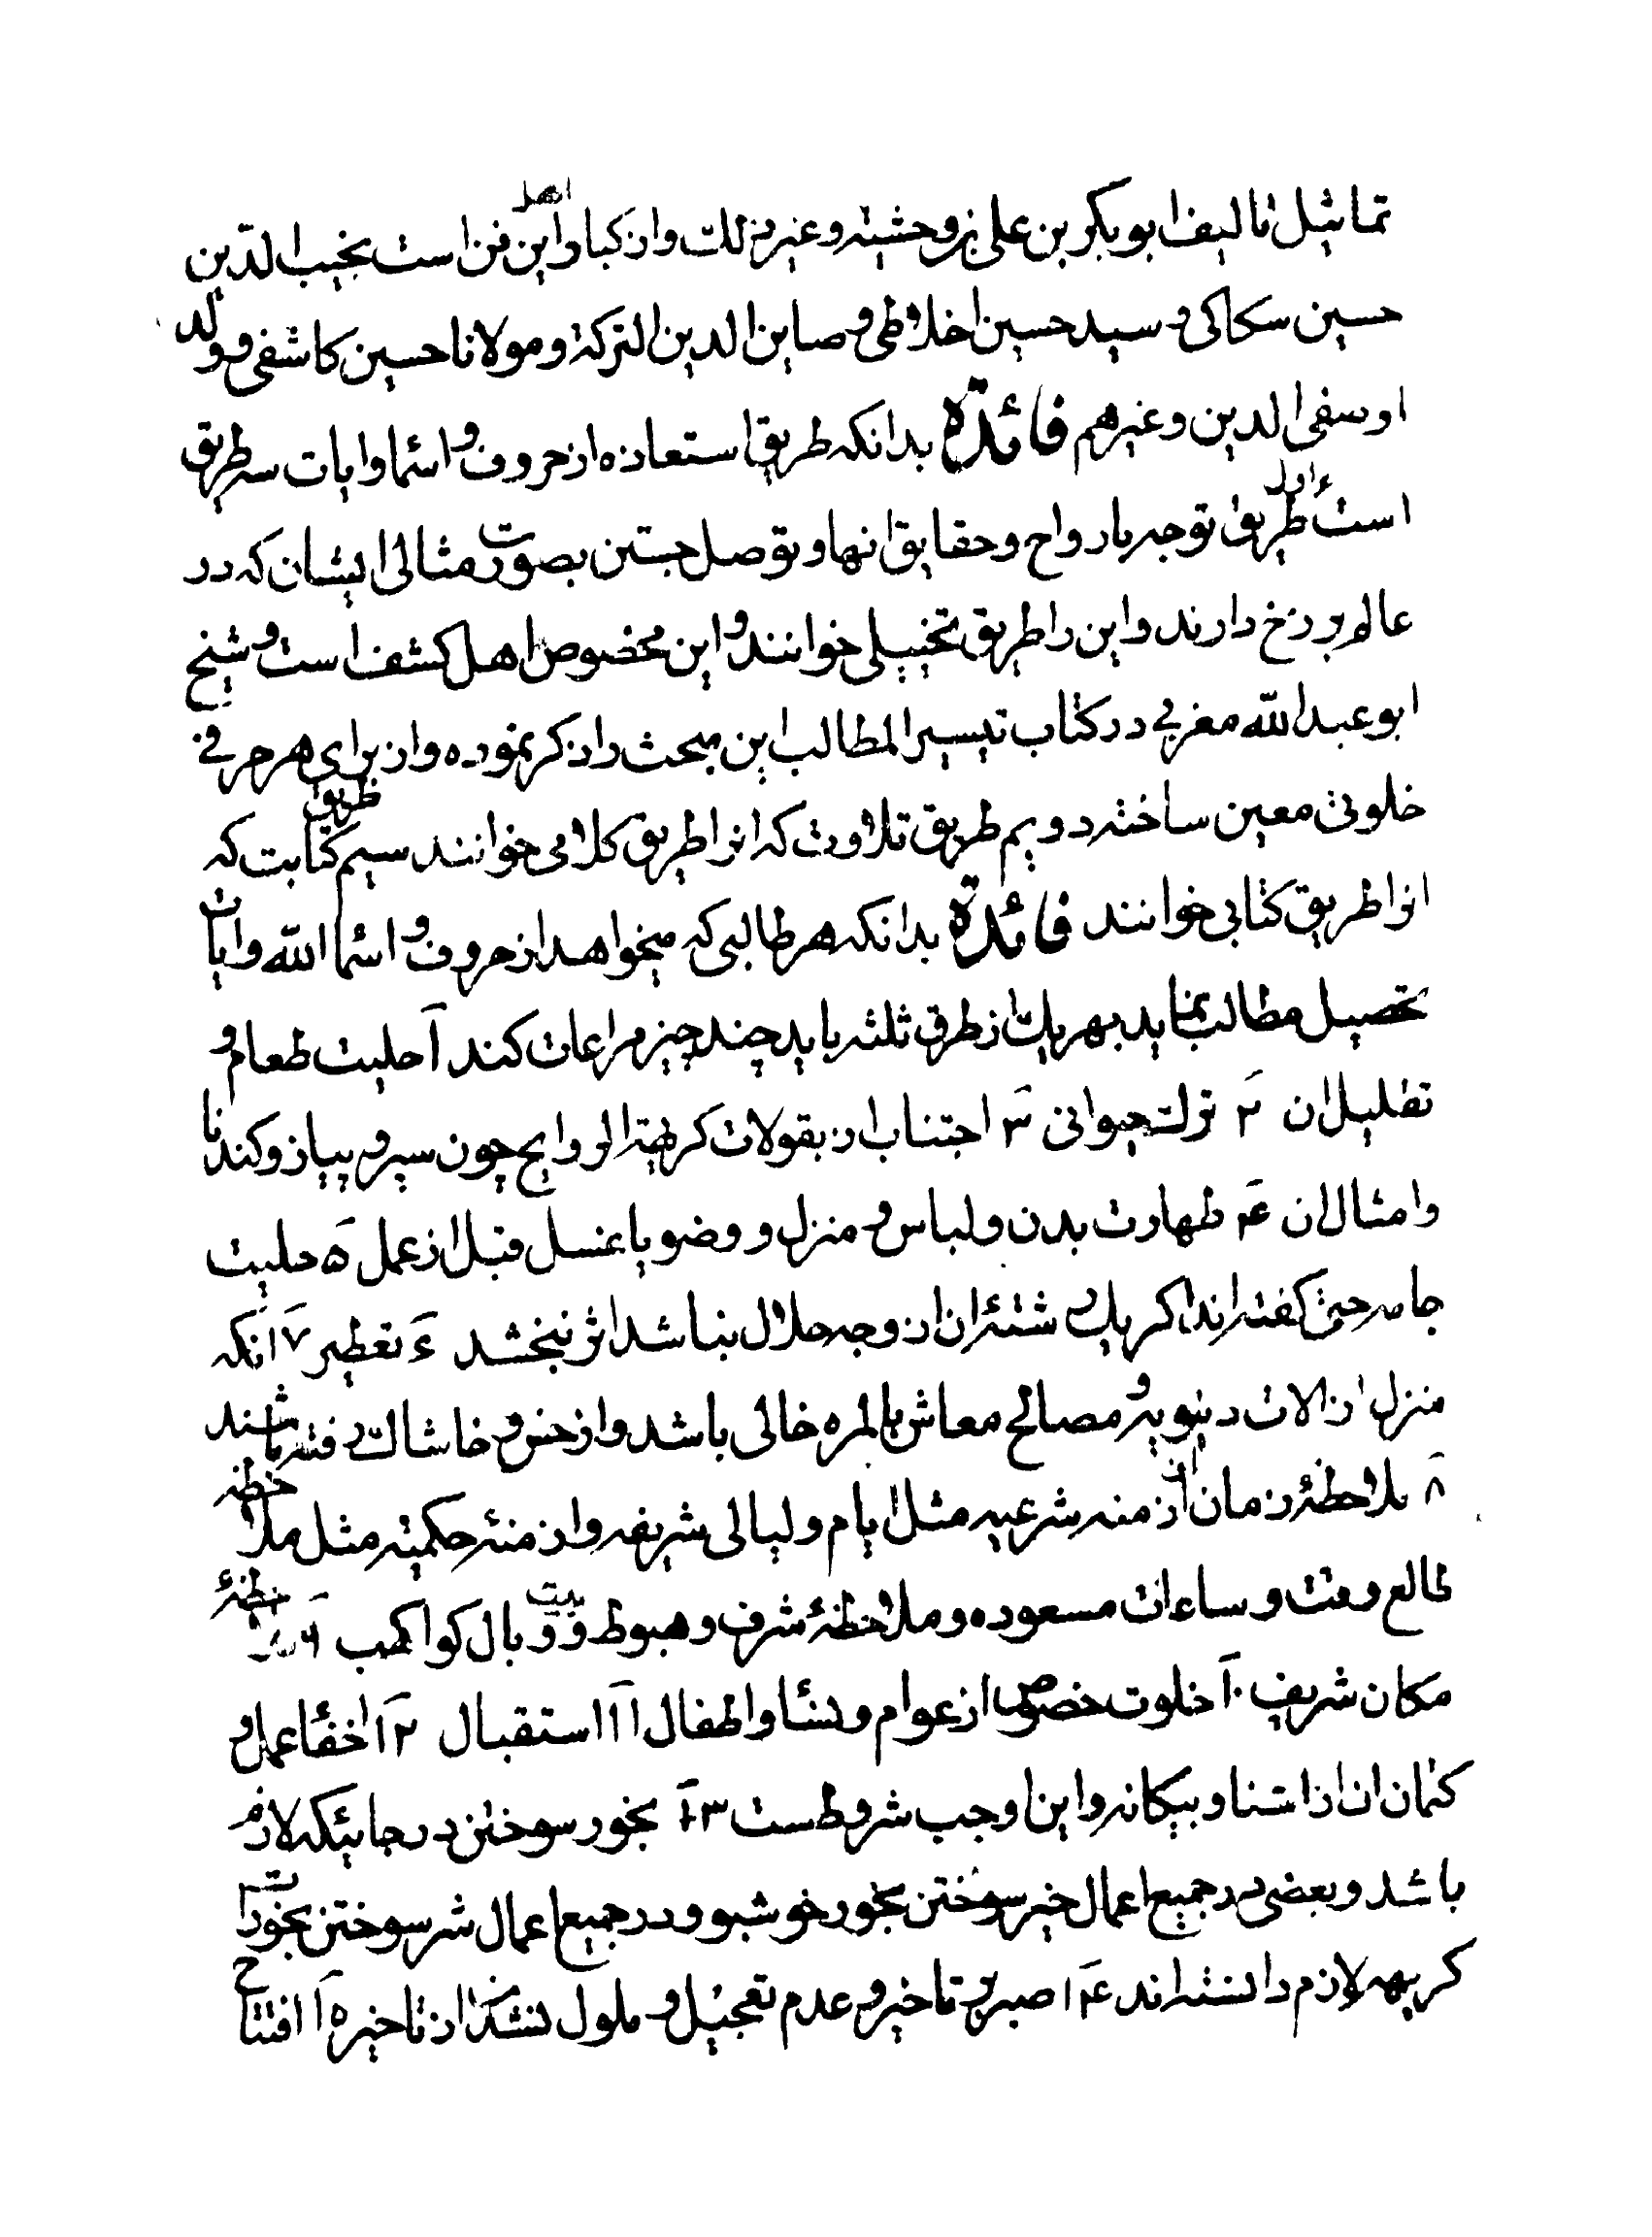 تماثیل تالیف ابوبکر بن علی بن وحشیه وغیر ذلک واز کبار اهل این فن است نجیب الدین
حسین سکاکی و سید حسین اخلاطی و صاین الدین الترکه و مولانا حسین کاشفی و ولد
او سفی الدین وغیرهم فائدة بدانکه طریق استعاذه از حروف و اسما وایات سه طریق
است اول طریق توجه بارواح وحقایق انها و توصل جستن بصورت مثالی ایشان که در
عالم برزخ دارند واین را طریق تخییلی خوانند و این مخصوص اهل کشف است و شیخ
ابو عبدالله مغربی در کتاب تیسیر المطالب این مبحث را ذکر نموده واز برای هر حرفی
خلوتی معین ساخته دویم طریق تلاوت که انرا طریق کلامی خوانند سیم طریق کتابت که
انرا طریق کتابی خوانند فائدة بدانکه هر طالبی که میخواهد از حروف و اسما الله وایات
تحصیل مطالب نماید بهر یک از طرق ثلثه باید چند چیز مراعات کند ١ حلیت طعام و
تقلیل ان ٢ ترک حیوانی ٣ اجتناب از بقولات کریهة الروایح چون سیر و پیاز و کندنا
وامثال ان ۴ طهارت بدن ولباس و منزل و وضو یا غسل قبل از عمل ۵ حلیت
جامه حتی کفته اند اکر یک رشتهٔ ان از وجه حلال نباشد اثر نبخشد ۶ تعطیر ٧ انکه
منزل از الات دنیویه و مصالح معاش بالمره خالی باشد واز خس و خاشاک رفته باشند
٨ ملاحظهٔ زمان از ازمنه شرعیه مثل ایام ولیالی شریفه وازمنهٔ حکمیّه مثل ملاحظه
طالع وقت وساعات مسعوده وملاحظهٔ شرف وهبوط و بیت و وبال کواکب ٩ ملاحظهٔ
مکان شریف ١٠ خلوت خصوص از عوام ونسا واطفال ١١ استقبال ١٢ اخفا عمل و
کتمان ان از اشنا و بیکانه واین اوجب شروطست ١٣ بخور سوختن در جائیکه لازم
باشد وبعضی در جمیع اعمال خیر سوختن بخور خوشبو ودر جمیع اعمال شر سوختن بخورات
کریهه لازم دانسته اند ١۴ صبر و تاخیر و عدم تعجیل و ملول نشدن از تاخیر ١۵ افتتاح